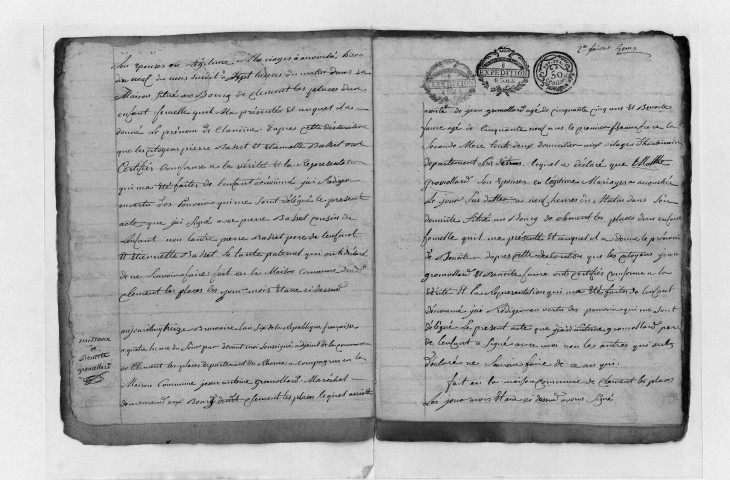 Son epouse en legitime Mariages a accouchée hier
dix neuf du mois suivit a Sept heures du matin dans Sa
Maison Située au Bourg de Clement les places d'un
enfant femelle qu'il ma présentée et auquel il a
donné le prénom de Claudine d'apres cette déclaration
que les Citoyens pierre Basset et Etiennette Basset ont
Certifiés Conforme a la vérité et la Representation
qui ma été faites de l'enfant dénommé jai Rediger
en vertu des pouvoir qui me Sont délégué le present
acte que jai Signé avec pierre Basset cousin de
l'enfant non l'autre pierre Basset pere de l'enfant
et Etiennette Basset Sa tante paternel qui ont déclaré
de ne Savoir faire fait en la Maison Commune dudit
Clement les places les jour mois et an ci dessus
naissance
de
Benoite
gromollard
aujourdhuy treize vi an Six de la République française
a quatre heure du Soir par devant moi Soussigné adjoint de la commune
de Clement les places departement du Rhône a comparu en la
Maison Commune jean antoine gromollard Marechal
demeurant aux Bourg dudit Clement les places lequel assisté
2e feuillet
EXPEDITION
EXPEDITION
50
de jean gromollard agé de Cinquante Cinq ans et Benoite
faure agé de Cinquante neuf ans le premier Beau frere la
Seconde Mere touts deux domicilier aux vilage
departement lequel a déclaré que
gromollard Son epouse en légitime Mariages a accouchée
Le jour Sus datée a neuf heures du Matin dans Son
domicile Située au Bourg de Clement les places d'un enfant
femelle qu'il ma présentée et auquel il a donné le prénom
de Benoite d'apres cette déclaration que les citoyens jean
gromollard et Benoite faure ont certifiés conforme a la
vérité et la Représentation qui ma été faites de l'enfant
dénommé jai Rediger en vertu des pouvoir qui me Sont
délégué Le present acte que jean antoine gromollard pere
de l'enfant a Signé avec moi non les autres qui ont
déclaré ne Savoir faire de ce
fait en la maison commune de Clement les places
Les jour mois et an ci dessus avons Signé